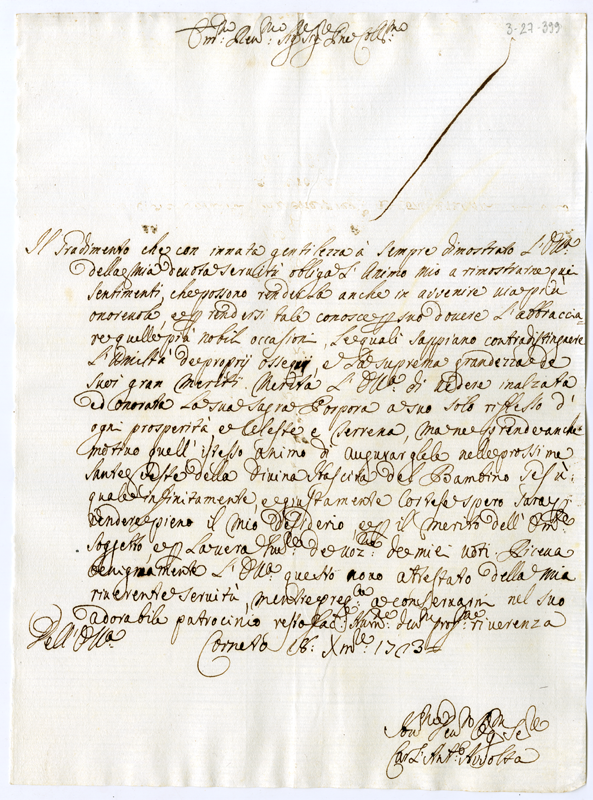 3-27-399
Em.mo Rev.mo Sig.re Sig.re Pne Col.mo
Il Gradimento che con innata gentilezza à sempre dimostrato L'Em.a
della mia devota servitù obliga L'Animo mio a rimostrarne quei
sentimenti, che possono renderla anche in avvenire via più
onorevole e p rendersi tale conosce p suo dovere L'abbraccia-
re quelle più nobil occasioni, le quali sappiano contradistinguere
L'umiltà de proprij ossequij, e La suprema grandezza de
suoi gran meriti. Merita L'Em.a di vedere inalzata
ed onorata La sua sagra Porpora a suo solo riflesso d'
ogni prosperità e Celeste e terrena, ma ne prende anche
motivo quell'istesso animo di augurargliele nelle prossime
sante feste della Divina Nascita del Bambino Gesù
quale infinitamente, e giustamente Cortese spero sarà p
rendere pieno il mio desiderio e p il merito dell'
soggetto e p La vera de miei voti. Riceva
benignamente L'Em.a questo nono attestato della mia
riverente servitù, mentre prego a conservarmi nel suo
adorabile patrocinio, resto riverenza
Dell'Em.a
Corneto 18: Xmbre 1713
Car. Ant.o